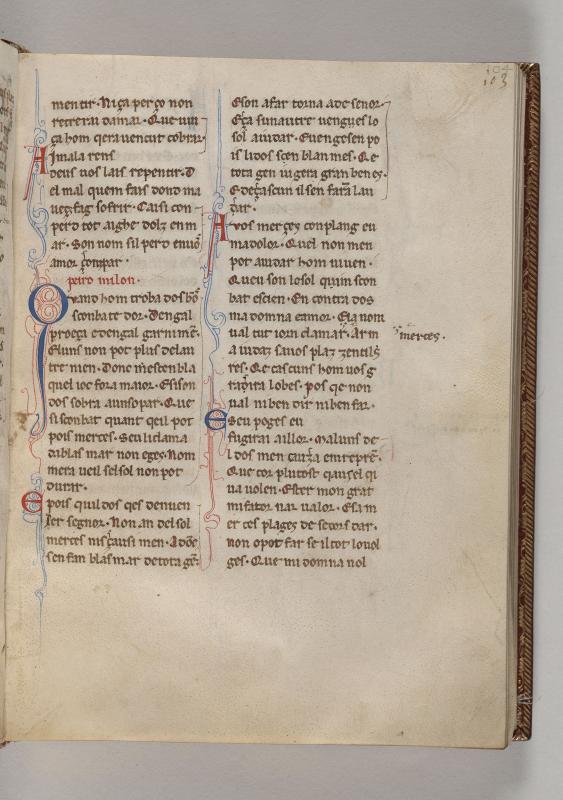 104
103
mentir. Ni ça per ço non
retrerai damar. Que uin
ça hom qera uencut cobrar.
Ai mala rens
deus uos lais repentir. D
el mal quem fais dond ma
ueç fag sofrir. Causi con
perd tot aighe dolz en m
ar. Son nom si l perd enuō
amor
peiro milon.
Quand hom troba dos bōs
sconbatedor. Dengal
proeça edengal garnimēt.
Eluns non pot plus de lau
tre uien. Donc mescenbla
quel ioc fora maior. Esi son
dos sobra aun so par. Que
si sconbat quant qeil pot
pois merces. Seu li clama
da blasmar non eges. Nom
mera ueil sel sol non pot
durar.
E pois qui l dos qes deuuen
ler segnor. Non an del sol
merces men. Adōc
sen fan blasmar de tota gēt.
E son afar torna a desenor.
Eça sun autre uengues lo
sol aiudar. Euenges en po
is li dos scenblan mes. Qe
tota gen iugera gran ben es.
E de çascun il sen fara lau
dar.
A uos merçeç conplang eu
ma dolor. Quel non men
pot aiudar hom uiuen.
Queu son lo sol quim scon
bat escien. En contra dos
ma domna e amor. Eia nom
ual tut iorn clamar. Arm
aiudaz sauos plaz zentils
merces.
res. Qe cascuns hom uos g
lobes. pos qe non
ual ni ben dir ni ben far.
E seu poges eu
fugirai aillor. Maluns de
l dos men enreprē.
Que cor plutost qausel qi
ua uolen. Ester mon grat
mi fa tornar ualor. Esa m
er ces plages de secors dar.
non opot far se il tot lo uol
ges. Que mi domna nol